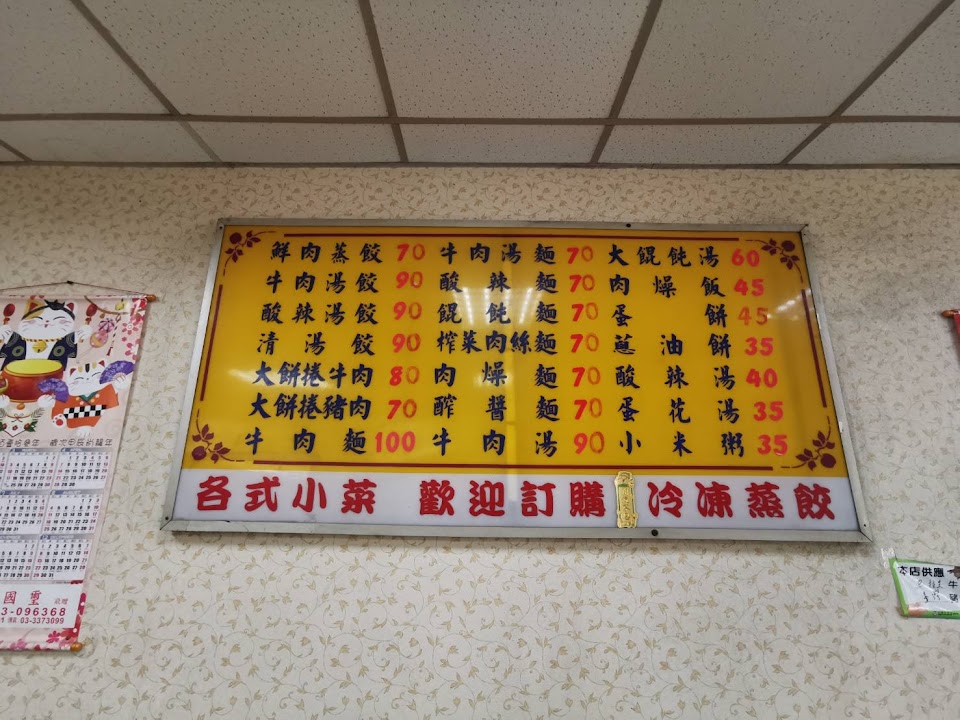 鮮肉蒸餃 70 牛肉湯麵 70 大餛飩湯 60
牛肉湯餃 90 酸辣麵 70 肉燥飯 45
酸辣湯餃 90 餛飩麵 70 蛋餅 45
清湯餃 90 榨菜肉絲麵 70 蔥油餅 35
大餅捲牛肉 80 肉燥麵 70 酸辣湯 40
大餅捲豬肉 70 醡醬麵 70 蛋花湯 35
牛肉麵 100 牛肉湯 90 小米粥 35
各式小菜 歡迎訂購 冷凍蒸餃
國璽 敬贈
3-096368
03-3373099
本店供應
牛
豬